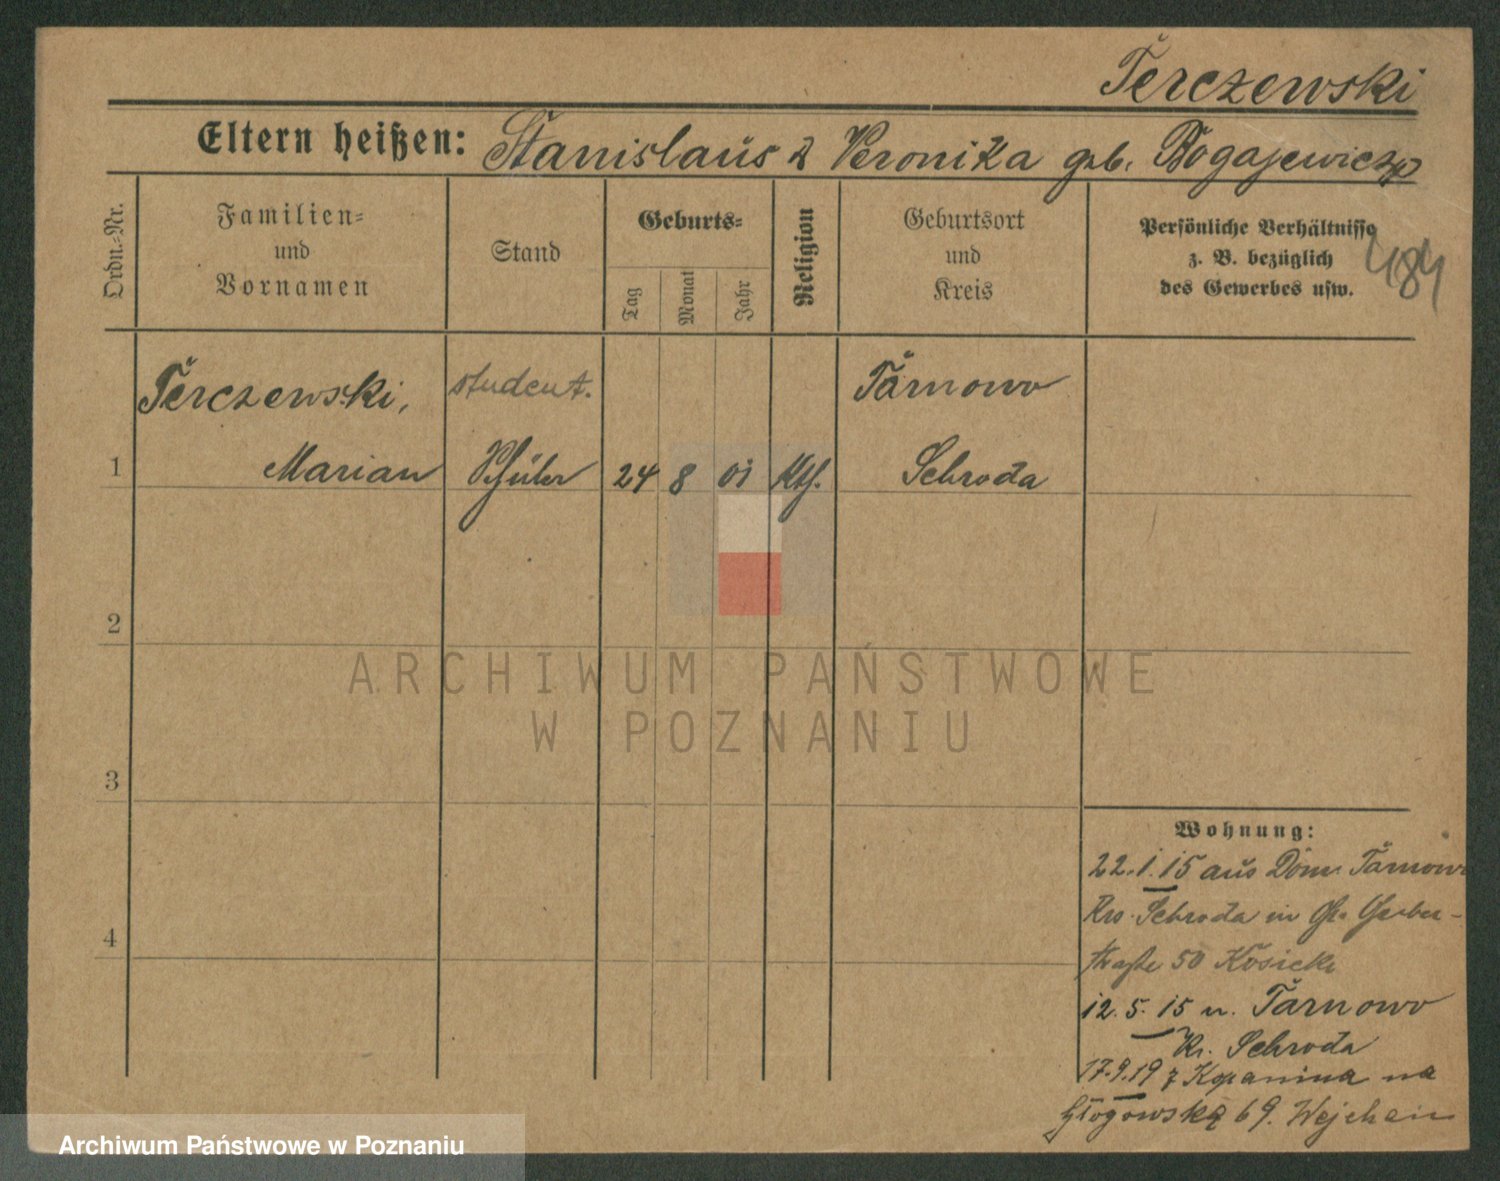 Terczewski
Eltern heißen: Stanislaus & Veronika geb. Rogajewicz
Ordn.-Nr.
Familien-
und
Vornamen
Stand
Geburts-
Tag
Monat
Jahr
Religion
Geburtsort
und
Kreis
Persönliche Verhältnisse
z. B. bezüglich
des Gewerbes usw.
484
Terczewski,
student.
Tarnowo
1
Marian
Schüler
24
8
01
Kth.
Schroda
2
ARCHIWUM PAŃSTWOWE
W POZNANIU
3
Wohnung:
22.1.15 aus Dom. Tarnowo
Krs. Schroda in Gr. Gerber-
4
straße 50 Kosicki
12.5.15 n. Tarnowo
Kr. Schroda
17.9.19 z Kopanina na
Głogowską 69.
Archiwum Państwowe w Poznaniu